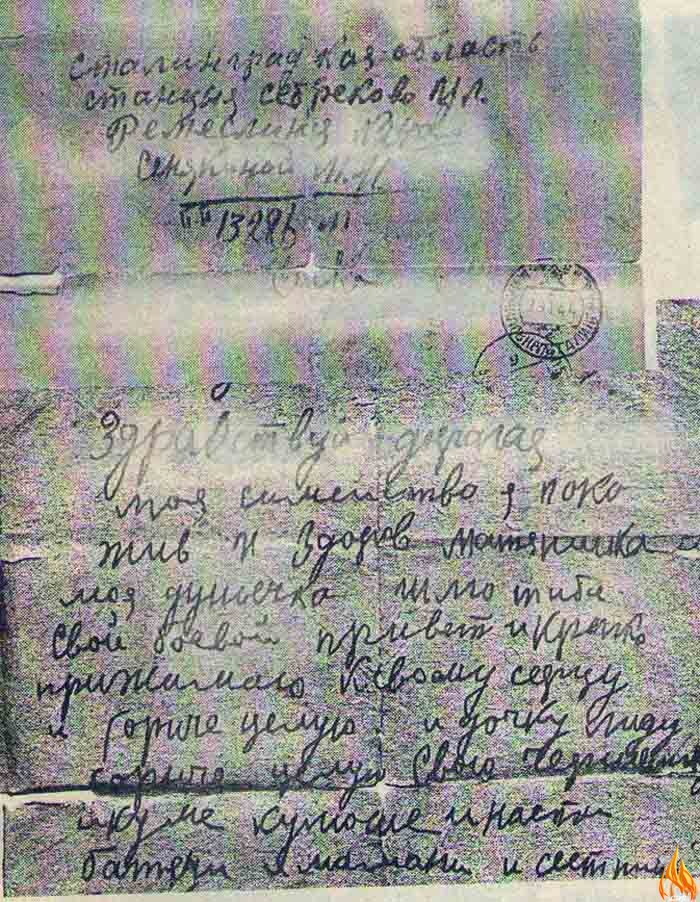 Сталинград кая область
станцыя себреково П/Л.
Ремеслиная
М.И
13286 М
Здравствуй дарагая
моя симейство я пока
жив и здоров Матяришка
моя дунечка шлю тибе
Свой боевой привет и крепко
прижимаю к свому серцу
и горяче целую и дочку лиду
горяче целую Свою
и куме кумоше и насти
батяри и мамани и сестрии